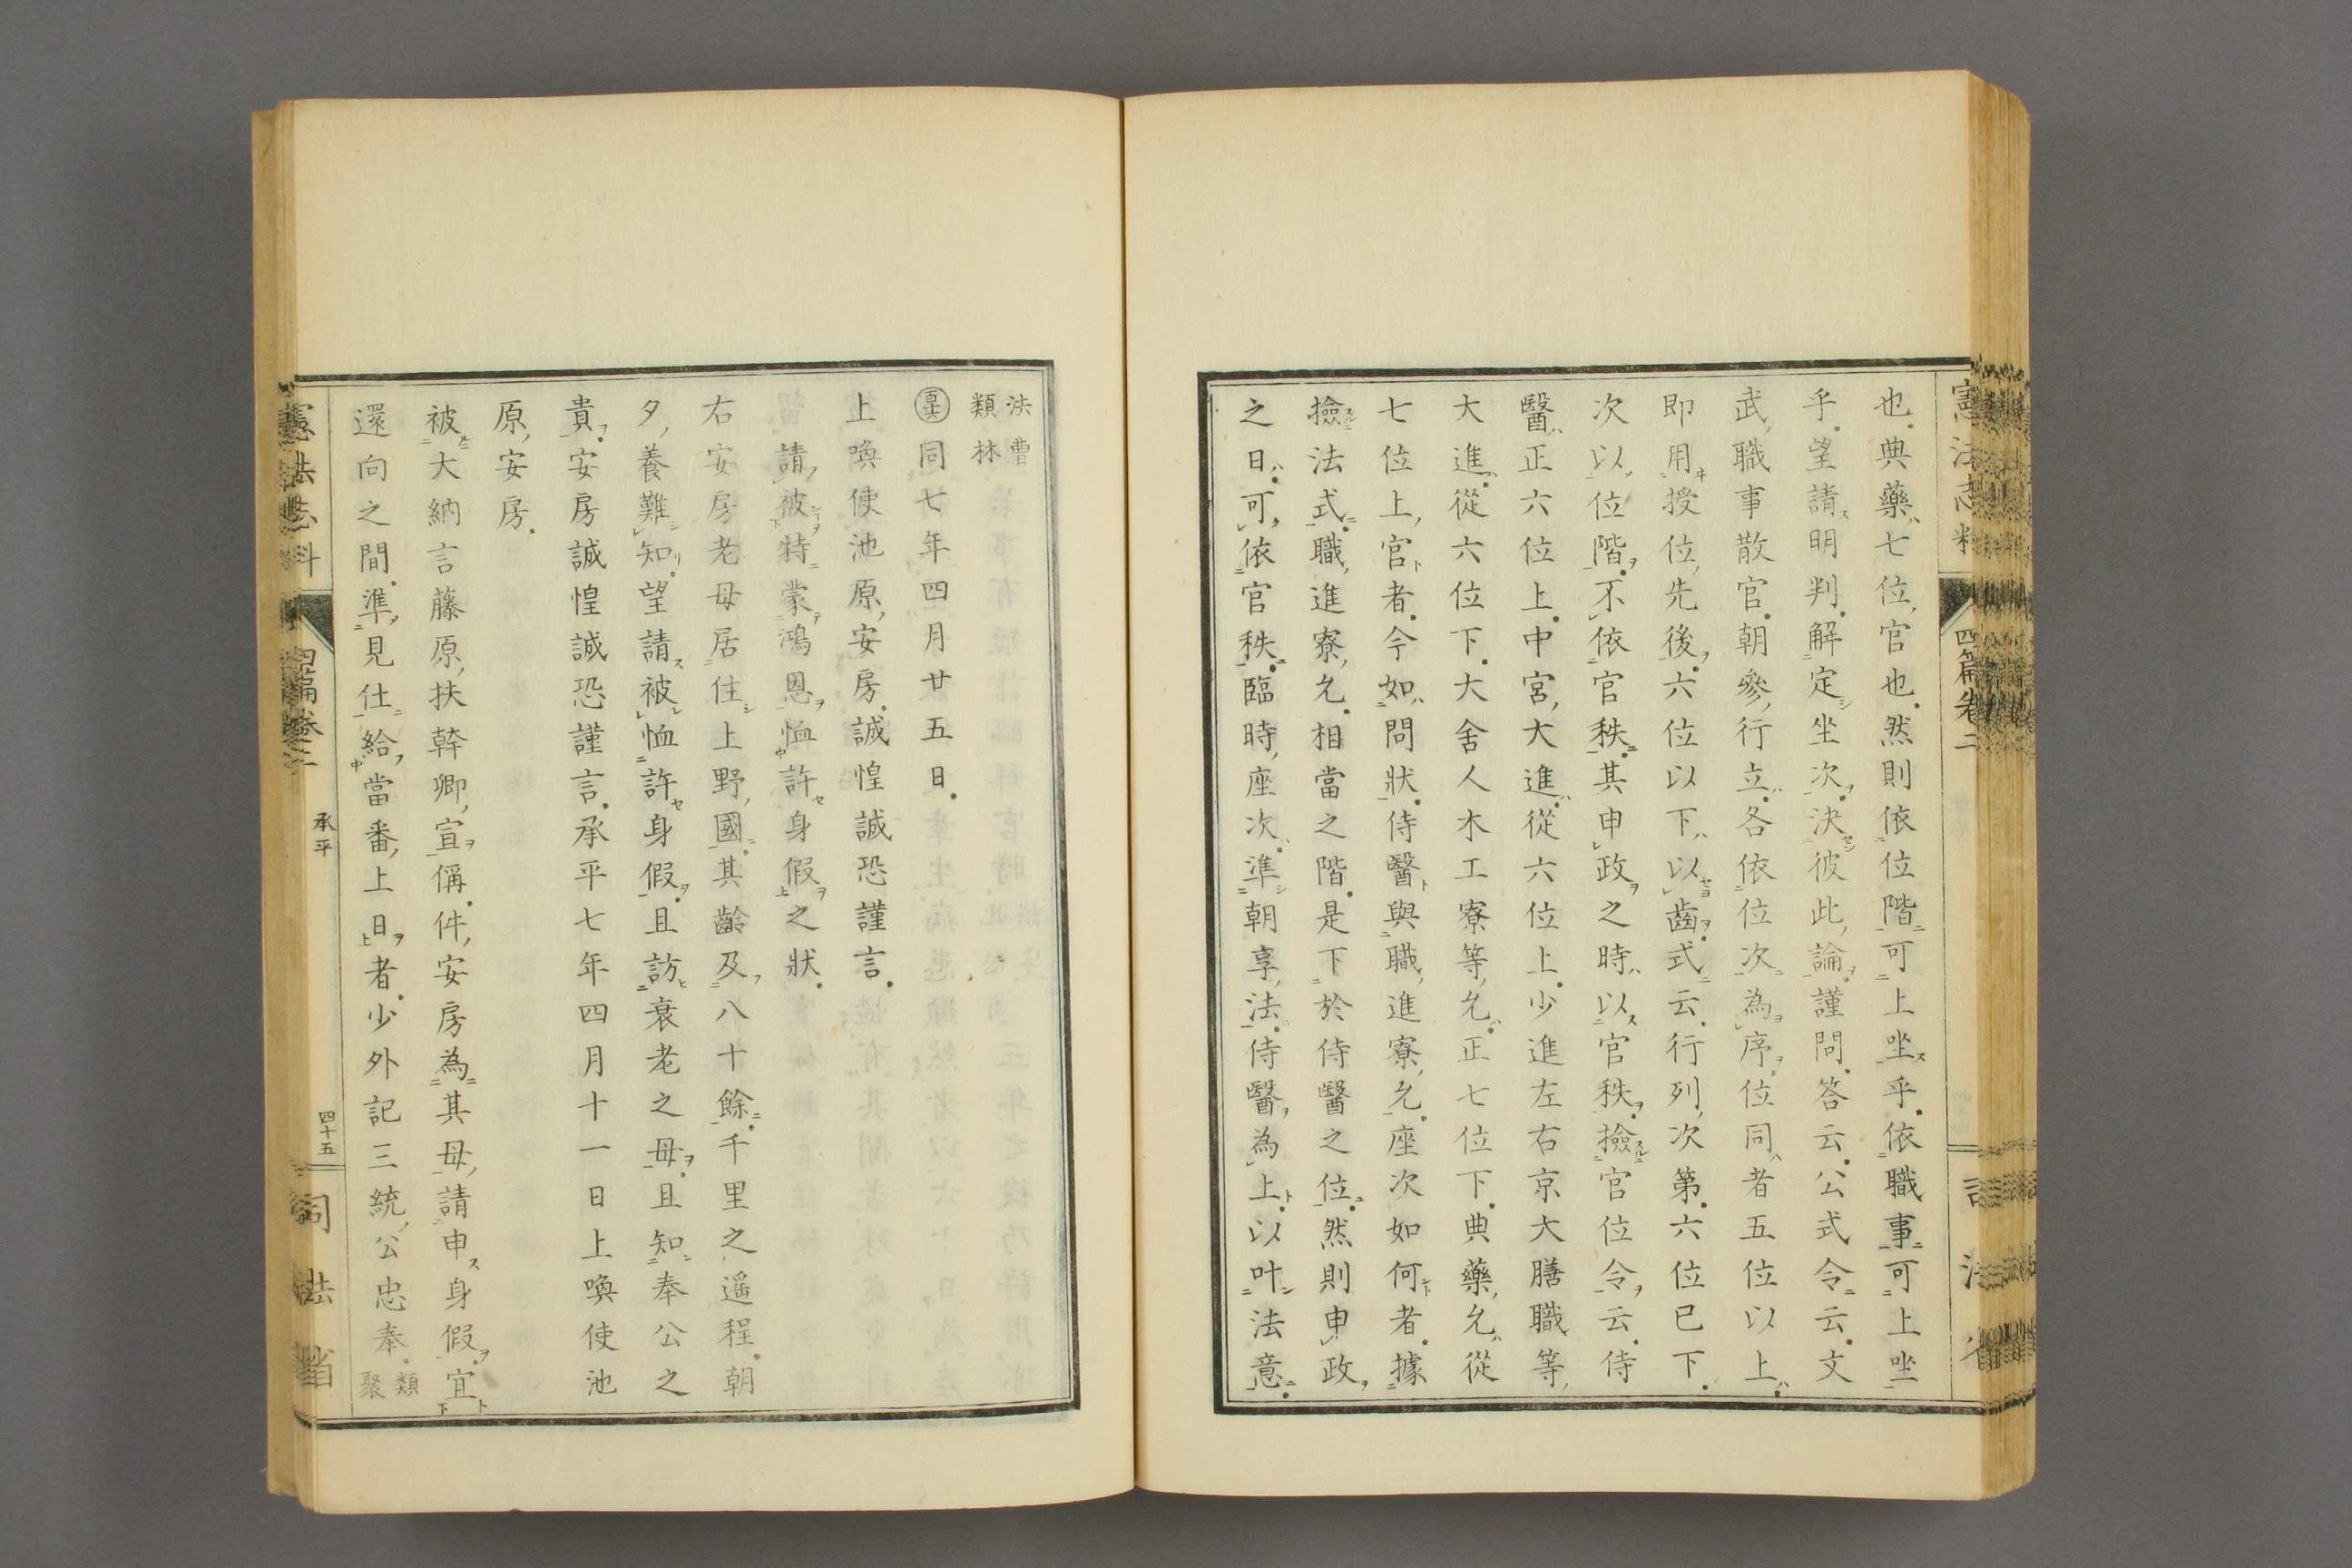 憲法志料
四篇卷二
也典藥ハ七位官也然則依位階可上坐乎依職事可上坐
乎望請明判解定坐次決彼此論謹問答云公式令云文
武職事散官朝參行立各依位次為序位同者五位以上
即用授位先後六位以下以齒式云行列次第六位已下
次以位階不依官秩其申政之時以官秩撿官位令云侍
醫正六位上中宮大進從六位上少進左右京大膳職等
大進從六位下大舍人木工寮等允正七位下典藥允從
七位上官者今如問狀侍醫與職進寮允座次如何者據
撿法式職進寮允相當之階是下於侍醫之位然則申政
之日可依官秩臨時座次準朝享法侍醫為上以叶法意
法曹
類林
同七年四月廿五日
上喚使池原安房誠惶誠恐謹言
請被特蒙鴻恩恤許身假之狀
右安房老母居住上野國其齡及八十餘千里之遥程朝
夕養難知望請被恤許身假且訪衰老之母且知奉公之
貴安房誠惶誠恐謹言承平七年四月十一日上喚使池
原安房
被大納言藤原扶幹卿宣偁件安房為其母請申身假宜
還向之間準見仕給當番上日者少外記三統公忠奉 類
聚
憲法志料
四篇卷二
承平
四十五
司法省